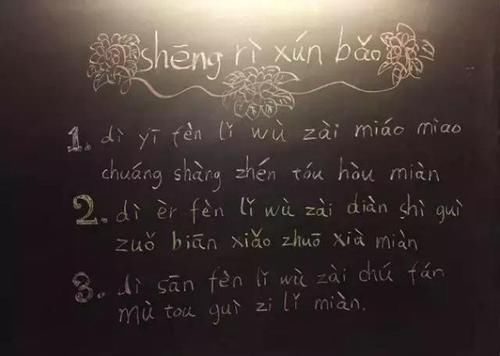 shēng rì xún bǎo
1. dì yī fèn lǐ wù zài miáo miao
chuáng shàng zhěn tóu hòu miàn
2. dì èr fèn lǐ wù zài diàn shì guì
zuǒ biān xiǎo zhuō xià miàn
3. dì sān fèn lǐ wù zài chú fáng
mù tou guì zi lǐ miàn.